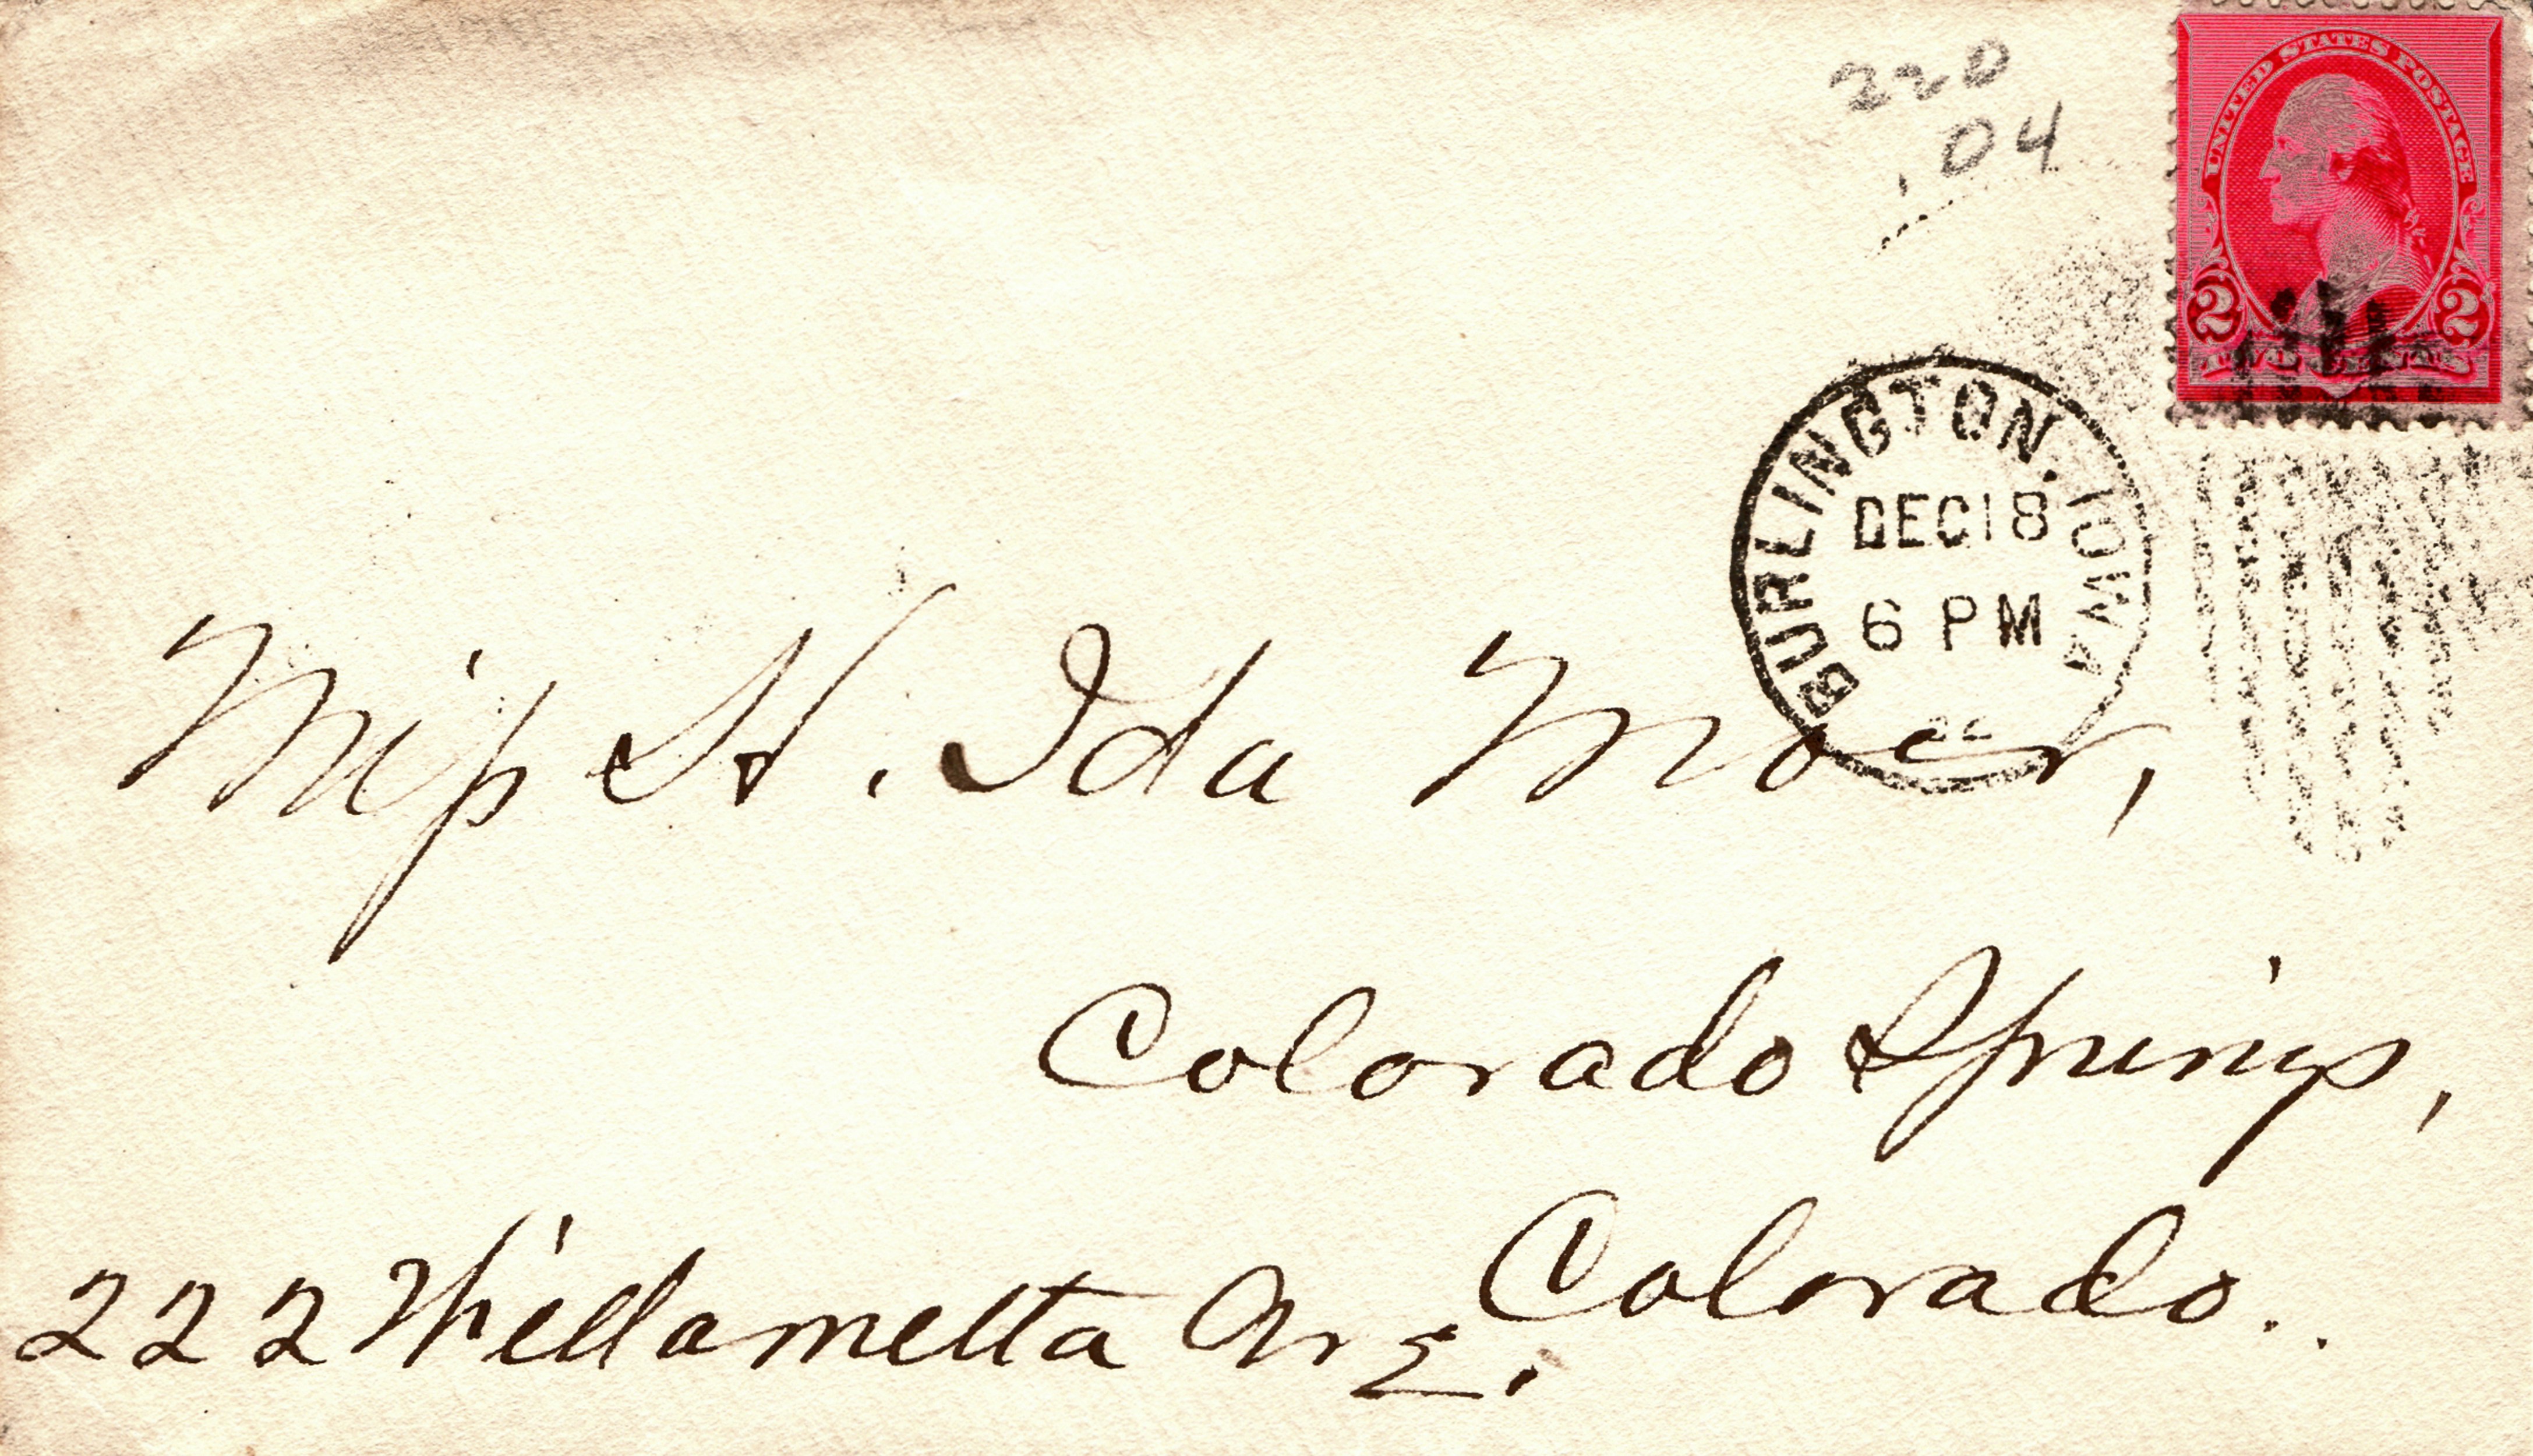 220
.04
UNITED STATES POSTAGE
2 2
TWO CENTS
BURLINGTON. IOWA
DEC 18
6 PM
Miss H. Ida Moer,
Colorado Springs,
Colorado.
222 Willametta Ave.